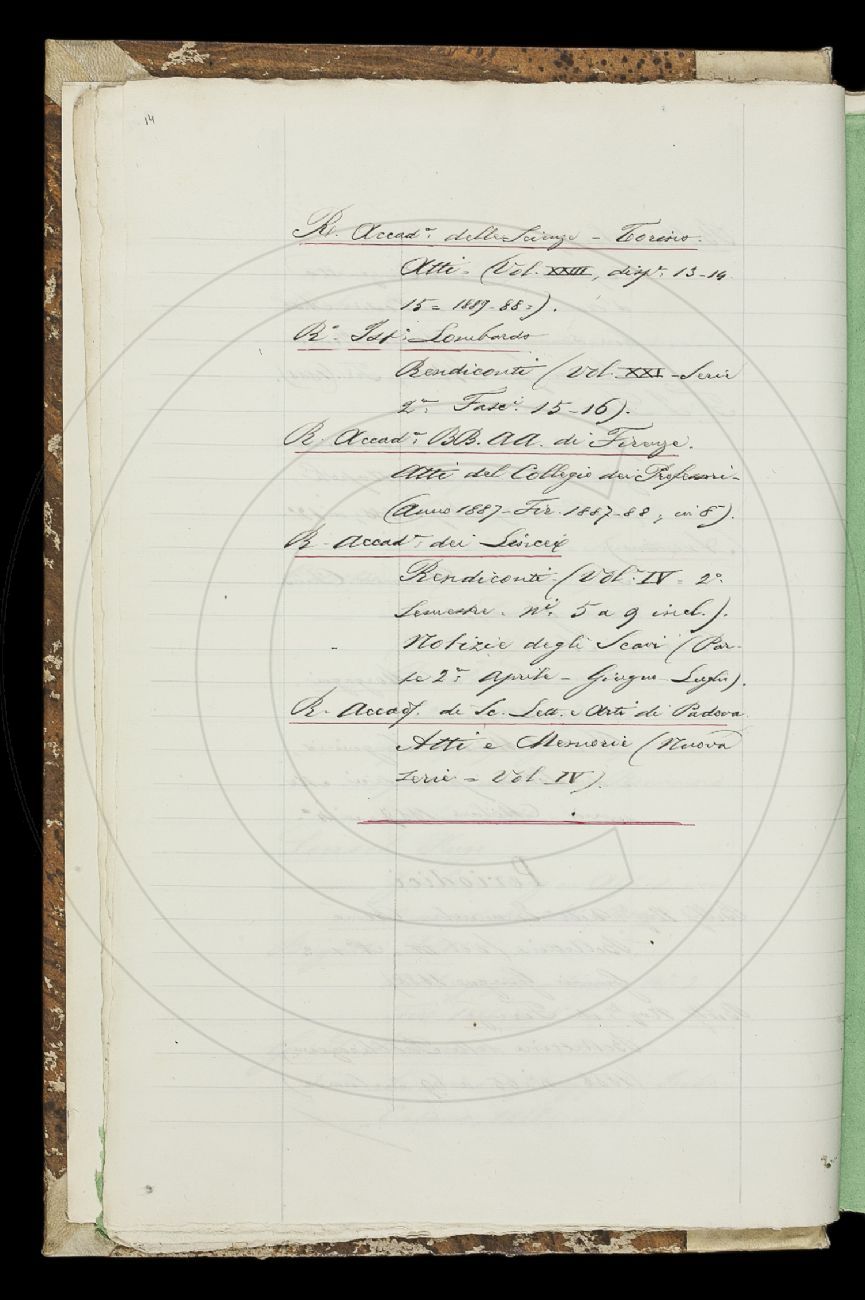 14
R. Accad.a delle Scienze - Torino.
Atti - (Vol. XXIII, disp.e 13-14
15 = 1887-88=).
R.o Ist.o Lombardo
Rendiconti (Vol. XXI - Serie
2.a Fasc.i 15-16).
R. Accad.a BB. AA. di Firenze.
Atti del Collegio dei Professori -
(Anno 1887 - Fir. 1887-88, in 8°).
R. Accad.a dei Lincei
Rendiconti - (Vol. IV = 2.o
Semestre - n.i 5 a 9 incl.).
" Notizie degli Scavi (Par-
te 2.a Aprile - Giugno - Luglio).
R. Accad. di Sc. Lett. e Arti di Padova.
Atti e Memorie (Nuova
serie = Vol. IV).